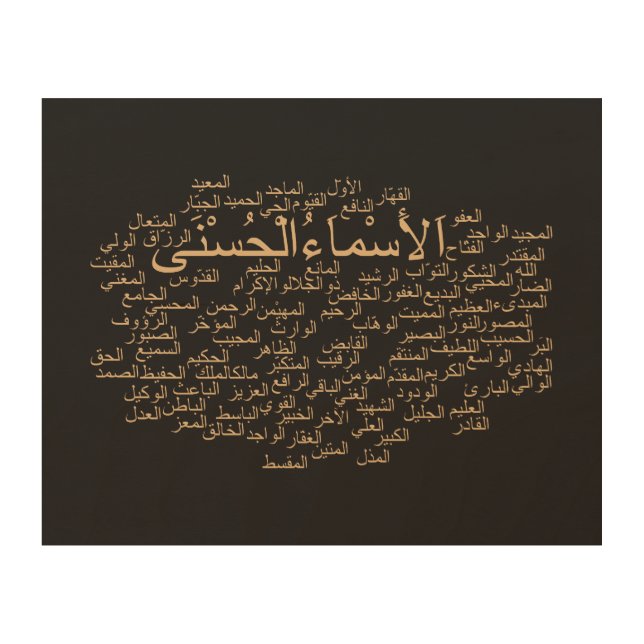 المعيد الماجد الأول القهّار
الجبّار الحميد الحي القيّوم النافع العفو
المتعال الواجد المجيد
الولي الرزّاق اَلأسْماَءُالْحُسْنَى الفتاح المقتدر
المقيت القدّوس الحليم المانع الرشيد التوّاب الشكور الله
المغني ذوالجلالوالإكرام المحيي الضار
الجامع الخافض الغفور البديع المبدىء
المحسي الرحمن المهيْمن الرحيم المميت العظيم
الرؤوف المؤخّر الوارث الوهّاب النور المصور
الصبور المجيب القابض البصير الحسيب
السميع الظاهر المنتقم اللطيف البَر
الحق الحكيم المتكبّر الرقيب الواسع الهادي
الصمد الحفيظ مالكالملك المؤمن المقدّم الكريم الوالي
الوكيل الباعث العزيز الرافع الباقي الغني الودود البارئ
العدل الباطن القوي الشهيد الجليل العليم
المعز الباسط الخبير الآخر العلي القادر
الخالق الواجد الغفار الكبير
المتين المذل
المقسط